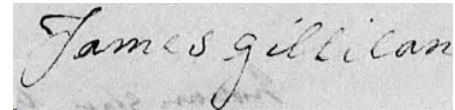 James gillilan